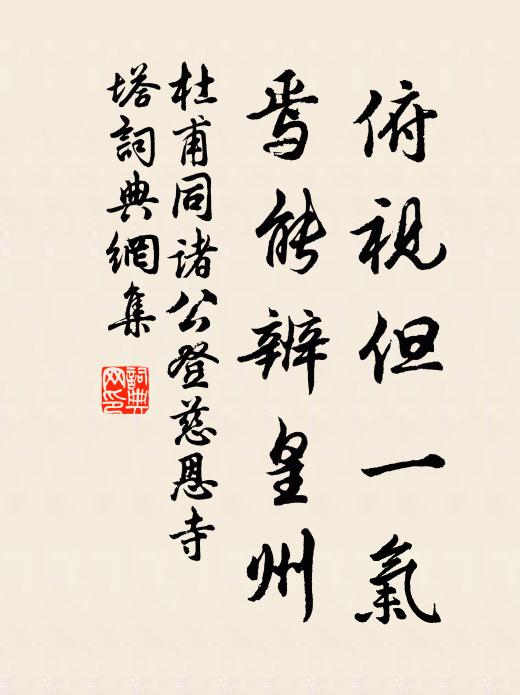 俯視但一氣
焉能辨皇州
杜甫同諸公登慈恩寺
塔詞典網集
詞典
网印